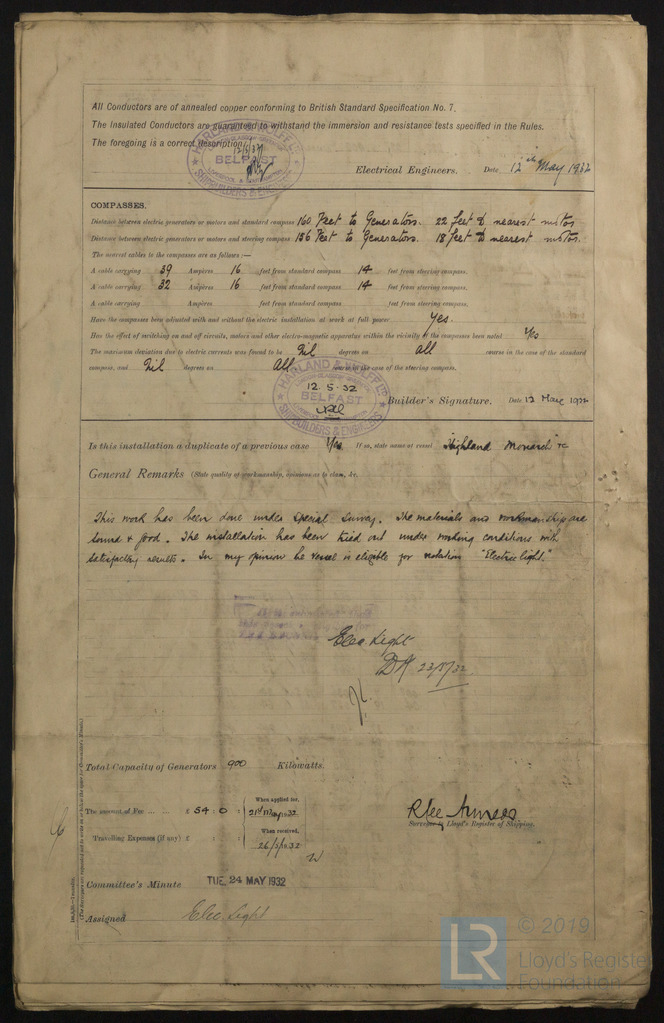 All Conductors are of annealed copper conforming to British Standard Specification No. 7.
The Insulated Conductors are guaranteed to withstand the immersion and resistance tests specified in the Rules.
The foregoing is a correct description,
HARLAND & WOLFF LTD
12/5/32
BELFAST
SHIPBUILDERS & ENGINEERS
Electrical Engineers. Date 12th May 1932
COMPASSES.
Distance between electric generators or motors and standard compass 160 Feet to Generators. 22 feet to nearest motor
Distance between electric generators or motors and steering compass 156 Feet to Generators. 18 feet to nearest motor.
The nearest cables to the compasses are as follows:—
A cable carrying 39 Ampères 16 feet from standard compass 14 feet from steering compass.
A cable carrying 32 Ampères 16 feet from standard compass 14 feet from steering compass.
A cable carrying Ampères feet from standard compass feet from steering compass.
Have the compasses been adjusted with and without the electric installation at work at full power Yes
Has the effect of switching on and off circuits, motors and other electro-magnetic apparatus within the vicinity of the compasses been noted Yes
The maximum deviation due to electric currents was found to be Nil degrees on all course in the case of the standard
compass, and Nil degrees on All course in the case of the steering compass.
HARLAND & WOLFF LTD
12.5.32
BELFAST
SHIPBUILDERS & ENGINEERS
Builder's Signature. Date 12 May 1932
Is this installation a duplicate of a previous case Yes If so, state name of vessel "Highland Monarch" &c
General Remarks (State quality of workmanship, opinions as to class, &c.
This work has been done under special survey. The materials and workmanship are
sound & good. The installation has been tried out under working conditions with
satisfactory results. In my opinion the vessel is eligible for notation "Electric light."
Elec. Light
23/5/32
Total Capacity of Generators 900 Kilowatts.
The amount of Fee ... ... £ 54 : 0 :
When applied for,
21st May 1932
Travelling Expenses (if any) £ : :
When received,
26/5/1932
Surveyor to Lloyd's Register of Shipping.
Committee's Minute TUE. 24 MAY 1932
Assigned Elec. Light
© 2019
LR
Lloyd's Register
Foundation